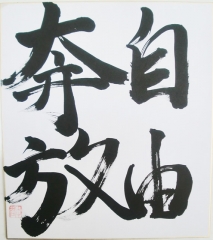 自由
奔放